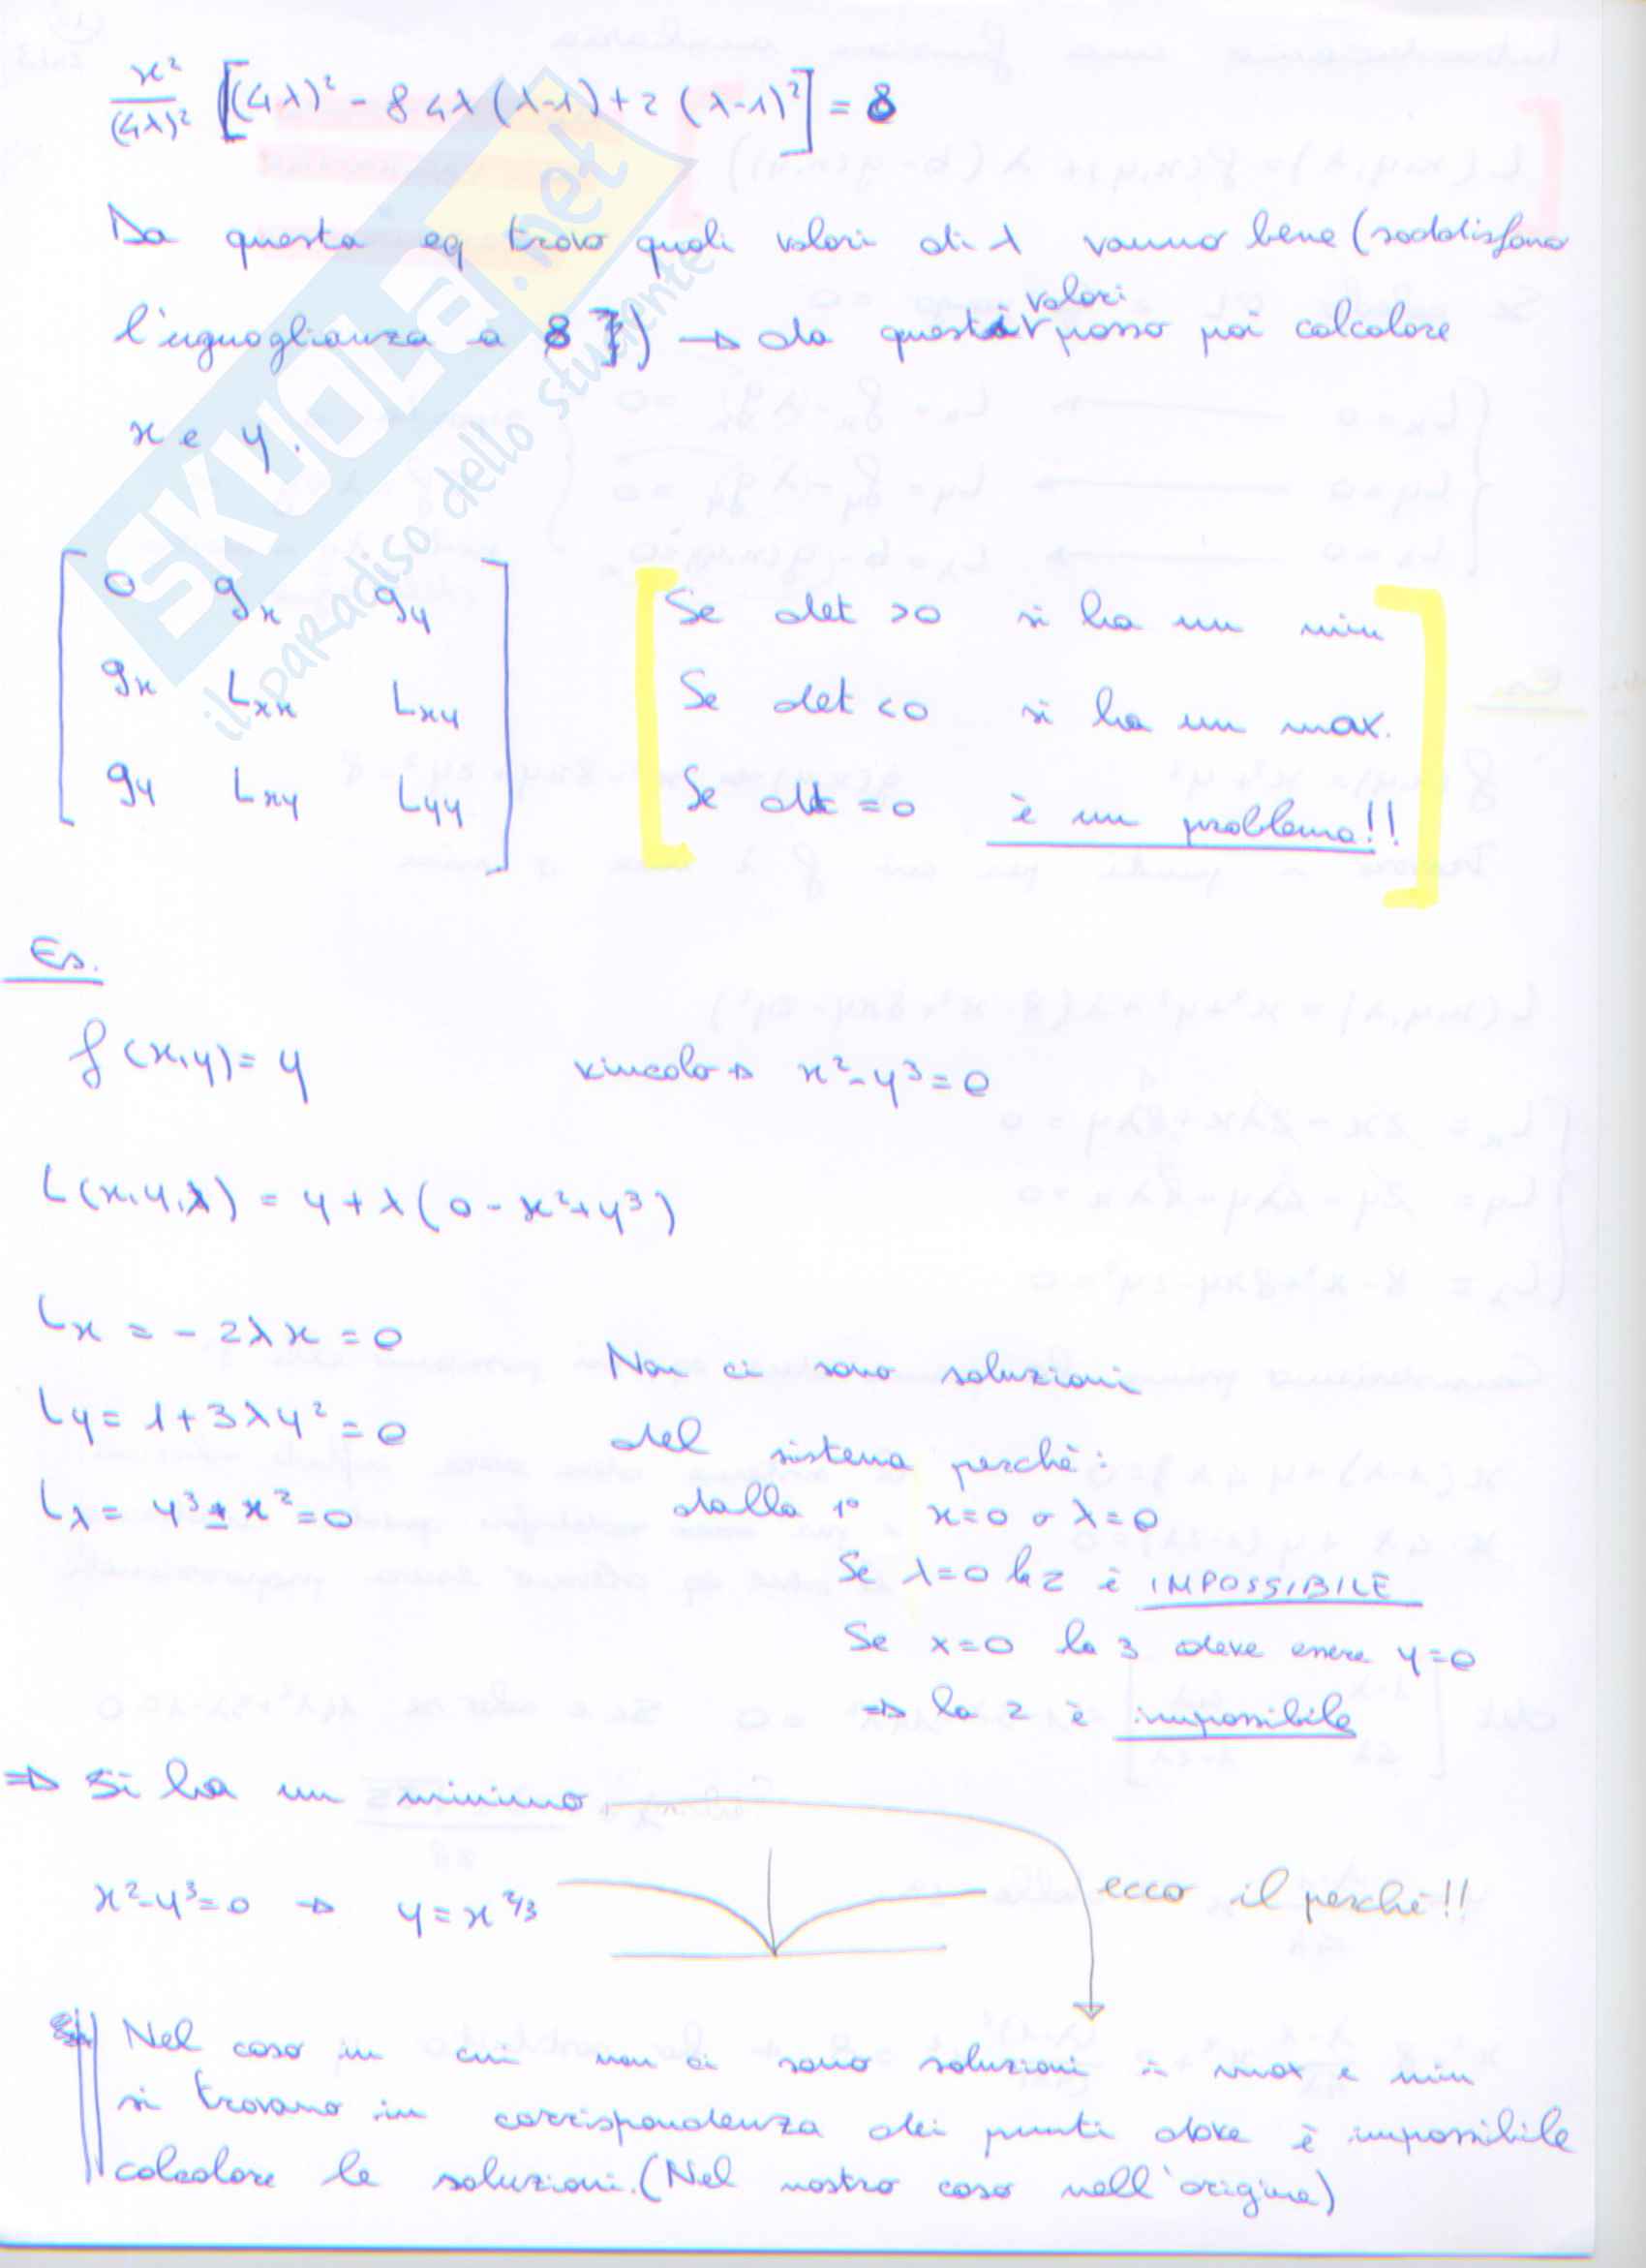 x²/(4λ)² [(4λ)² - 8 4λ (λ-1) + 2 (λ-1)²] = 8
Da questa eq trovo quali valori di λ vanno bene (soddisfano
l'uguaglianza a 8) → da questi valori posso poi calcolare
x e y.
0 gx gy
gx Lxx Lxy
gy Lxy Lyy
Se det >0 si ha un min
Se det <0 si ha un max.
Se det =0 è un problema!!
Es.
f(x,y)= y vincolo → x²-y³=0
L(x,y,λ) = y+λ(0-x²+y³)
Lx = -2λx=0
Ly= 1+3λy²=0
Lλ= y³-x²=0
Non ci sono soluzioni
del sistema perchè:
dalla 1° x=0 o λ=0
Se λ=0 la 2 è IMPOSSIBILE
Se x=0 la 3 deve essere y=0
⇒ la 2 è impossibile
⇒ Si ha un minimo
x²-y³=0 → y=x^2/3 ecco il perchè!!
Nel caso in cui non ci sono soluzioni i max e min
si trovano in corrispondenza dei punti dove è impossibile
calcolare le soluzioni. (Nel nostro caso nell'origine)
SKUOLA.net
il paradiso dello studente